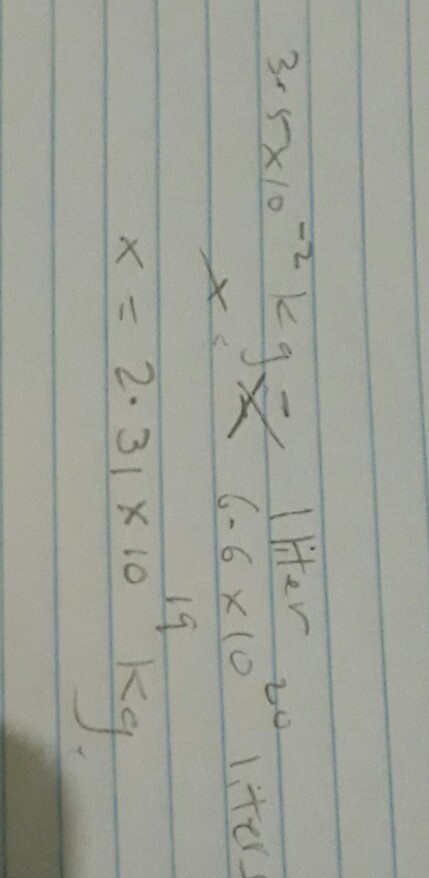 3.5x10⁻² kg = 1 liter
x : 6.6 x 10²⁰ liters
x = 2.31 x 10¹⁹ kg.